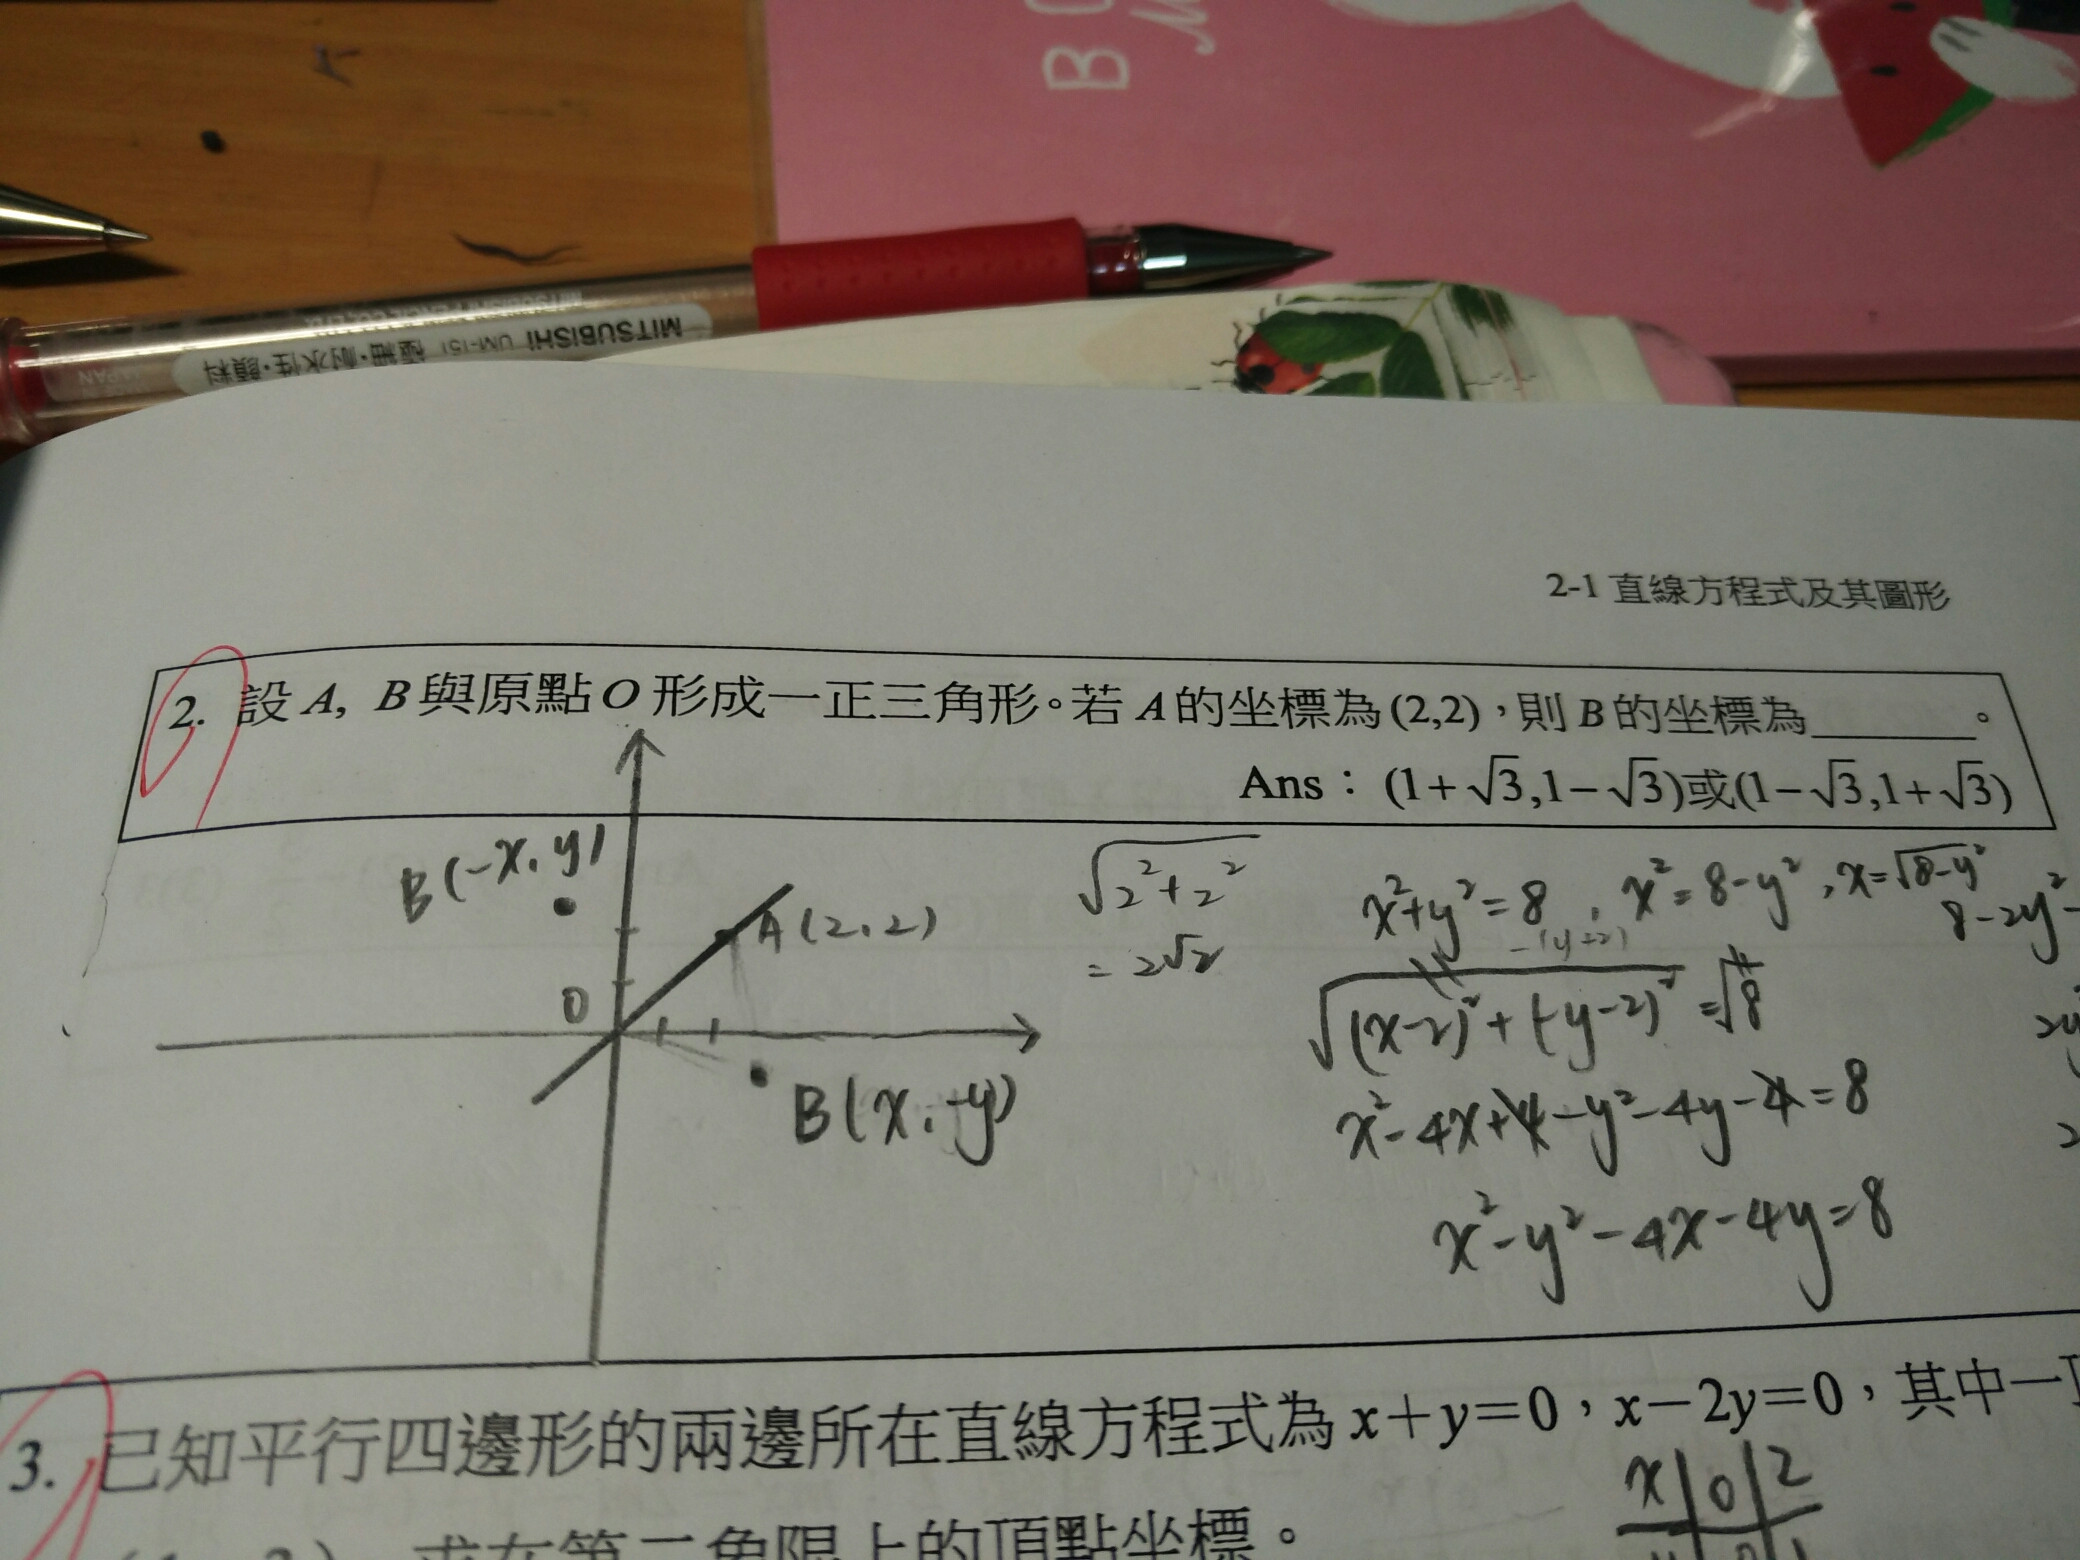 MITSUBISHI UM-151 極細・耐水性・顔料
JAPAN
2-1 直線方程式及其圖形
2. 設 A, B 與原點 O 形成一正三角形。若 A 的坐標為 (2,2)，則 B 的坐標為______。
Ans： (1+√3,1−√3)或(1−√3,1+√3)
B(-x, y)
A(2,2)
O
B(x,-y)
√(2²+2²)
= 2√2
x²+y²=8, x²=8-y², x=√(8-y²)
8-2y²-
-(y+2)
√((x-2)²+(-y-2)²)=√8
x²-4x+4-y²-4y-4=8
x²-y²-4x-4y=8
3. 已知平行四邊形的兩邊所在直線方程式為 x+y=0，x−2y=0，其中一
x 0 2
求在第二象限上的頂點坐標。